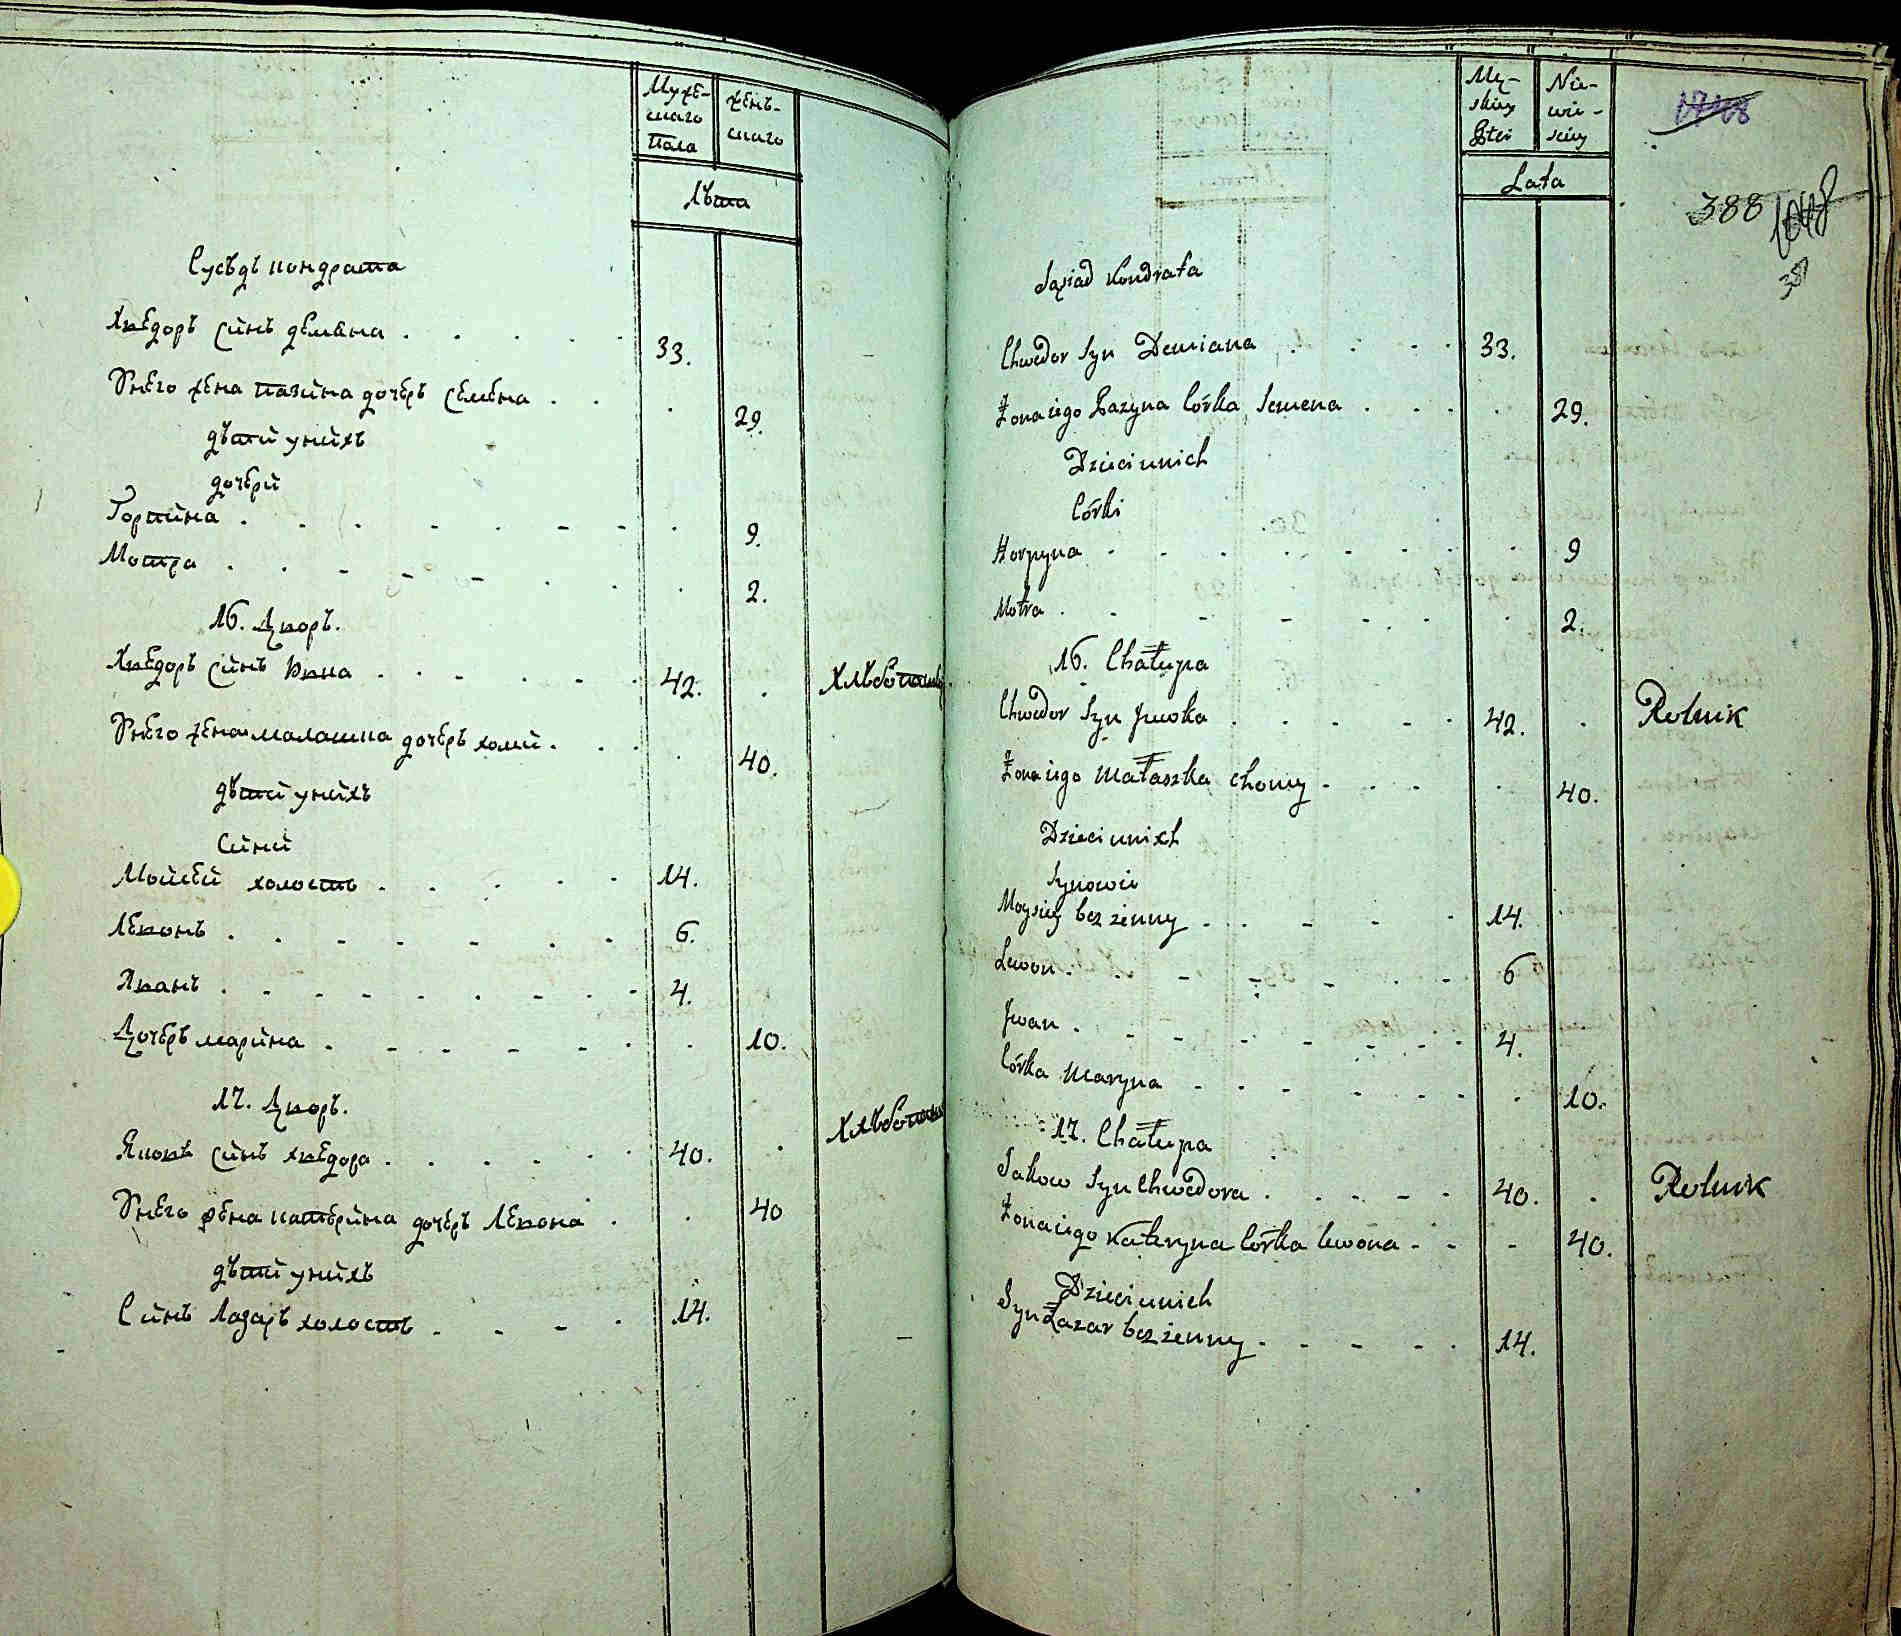 Муже- женъ-
скаго скаго
пола
лѣта
Сусѣдъ кондрата
Хведоръ сынъ демяна . . . . . 33.
Унего жена пазина дочеръ семена . . . 29.
дѣти унихъ
дочери
Горпина . . . . . . . 9.
Мотра . . . . . . . 2.
16. Дворъ.
Хведоръ сынъ Ивка . . . . . 42. . Хлѣбопашц
Унего жена малашка дочеръ хоми . . . 40.
дѣти унихъ
Сини
Мойсей холостъ . . . . . 14.
Левонъ . . . . . . . 6.
Иванъ . . . . . . . . 4.
Дочеръ марина . . . . . . . 10.
17. Дворъ.
Яковъ синъ хведора . . . . . 40. . Хлѣбопашц
Унего жена катерина дочеръ Левона . . 40
дѣти унихъ
Синъ Лазаръ холостъ . . . . 14.
Mę- Nie-
skiey wie-
Płci sciey
Lata
1748
388 1048
388
Sąsiad Kondrata
Chwedor Syn Demiana . . . . 33.
Żona iego Pazyna Córka Semena . . . . 29.
Dzieci u nich
Córki
Horpyna . . . . . . . . 9
Motra . . . . . . . 2.
16. Chałupa
Chwedor Syn Jwka . . . . . 42. . Rolnik
Żona iego Małaszka Chomy . . . . 40.
Dzieci u nich
Synowie
Moysiey bez żenny . . . . . 14.
Lewon . . . . . . . 6
Jwan . . . . . . . . 4.
Córka Maryna . . . . . . . 10.
17. Chałupa
Jakow Syn Chwedora . . . . . 40. . Rolnik
Żona iego Kateryna Córka Lewona . . . 40.
Dzieci u nich
Syn Łazar bez żenny . . . . . 14.